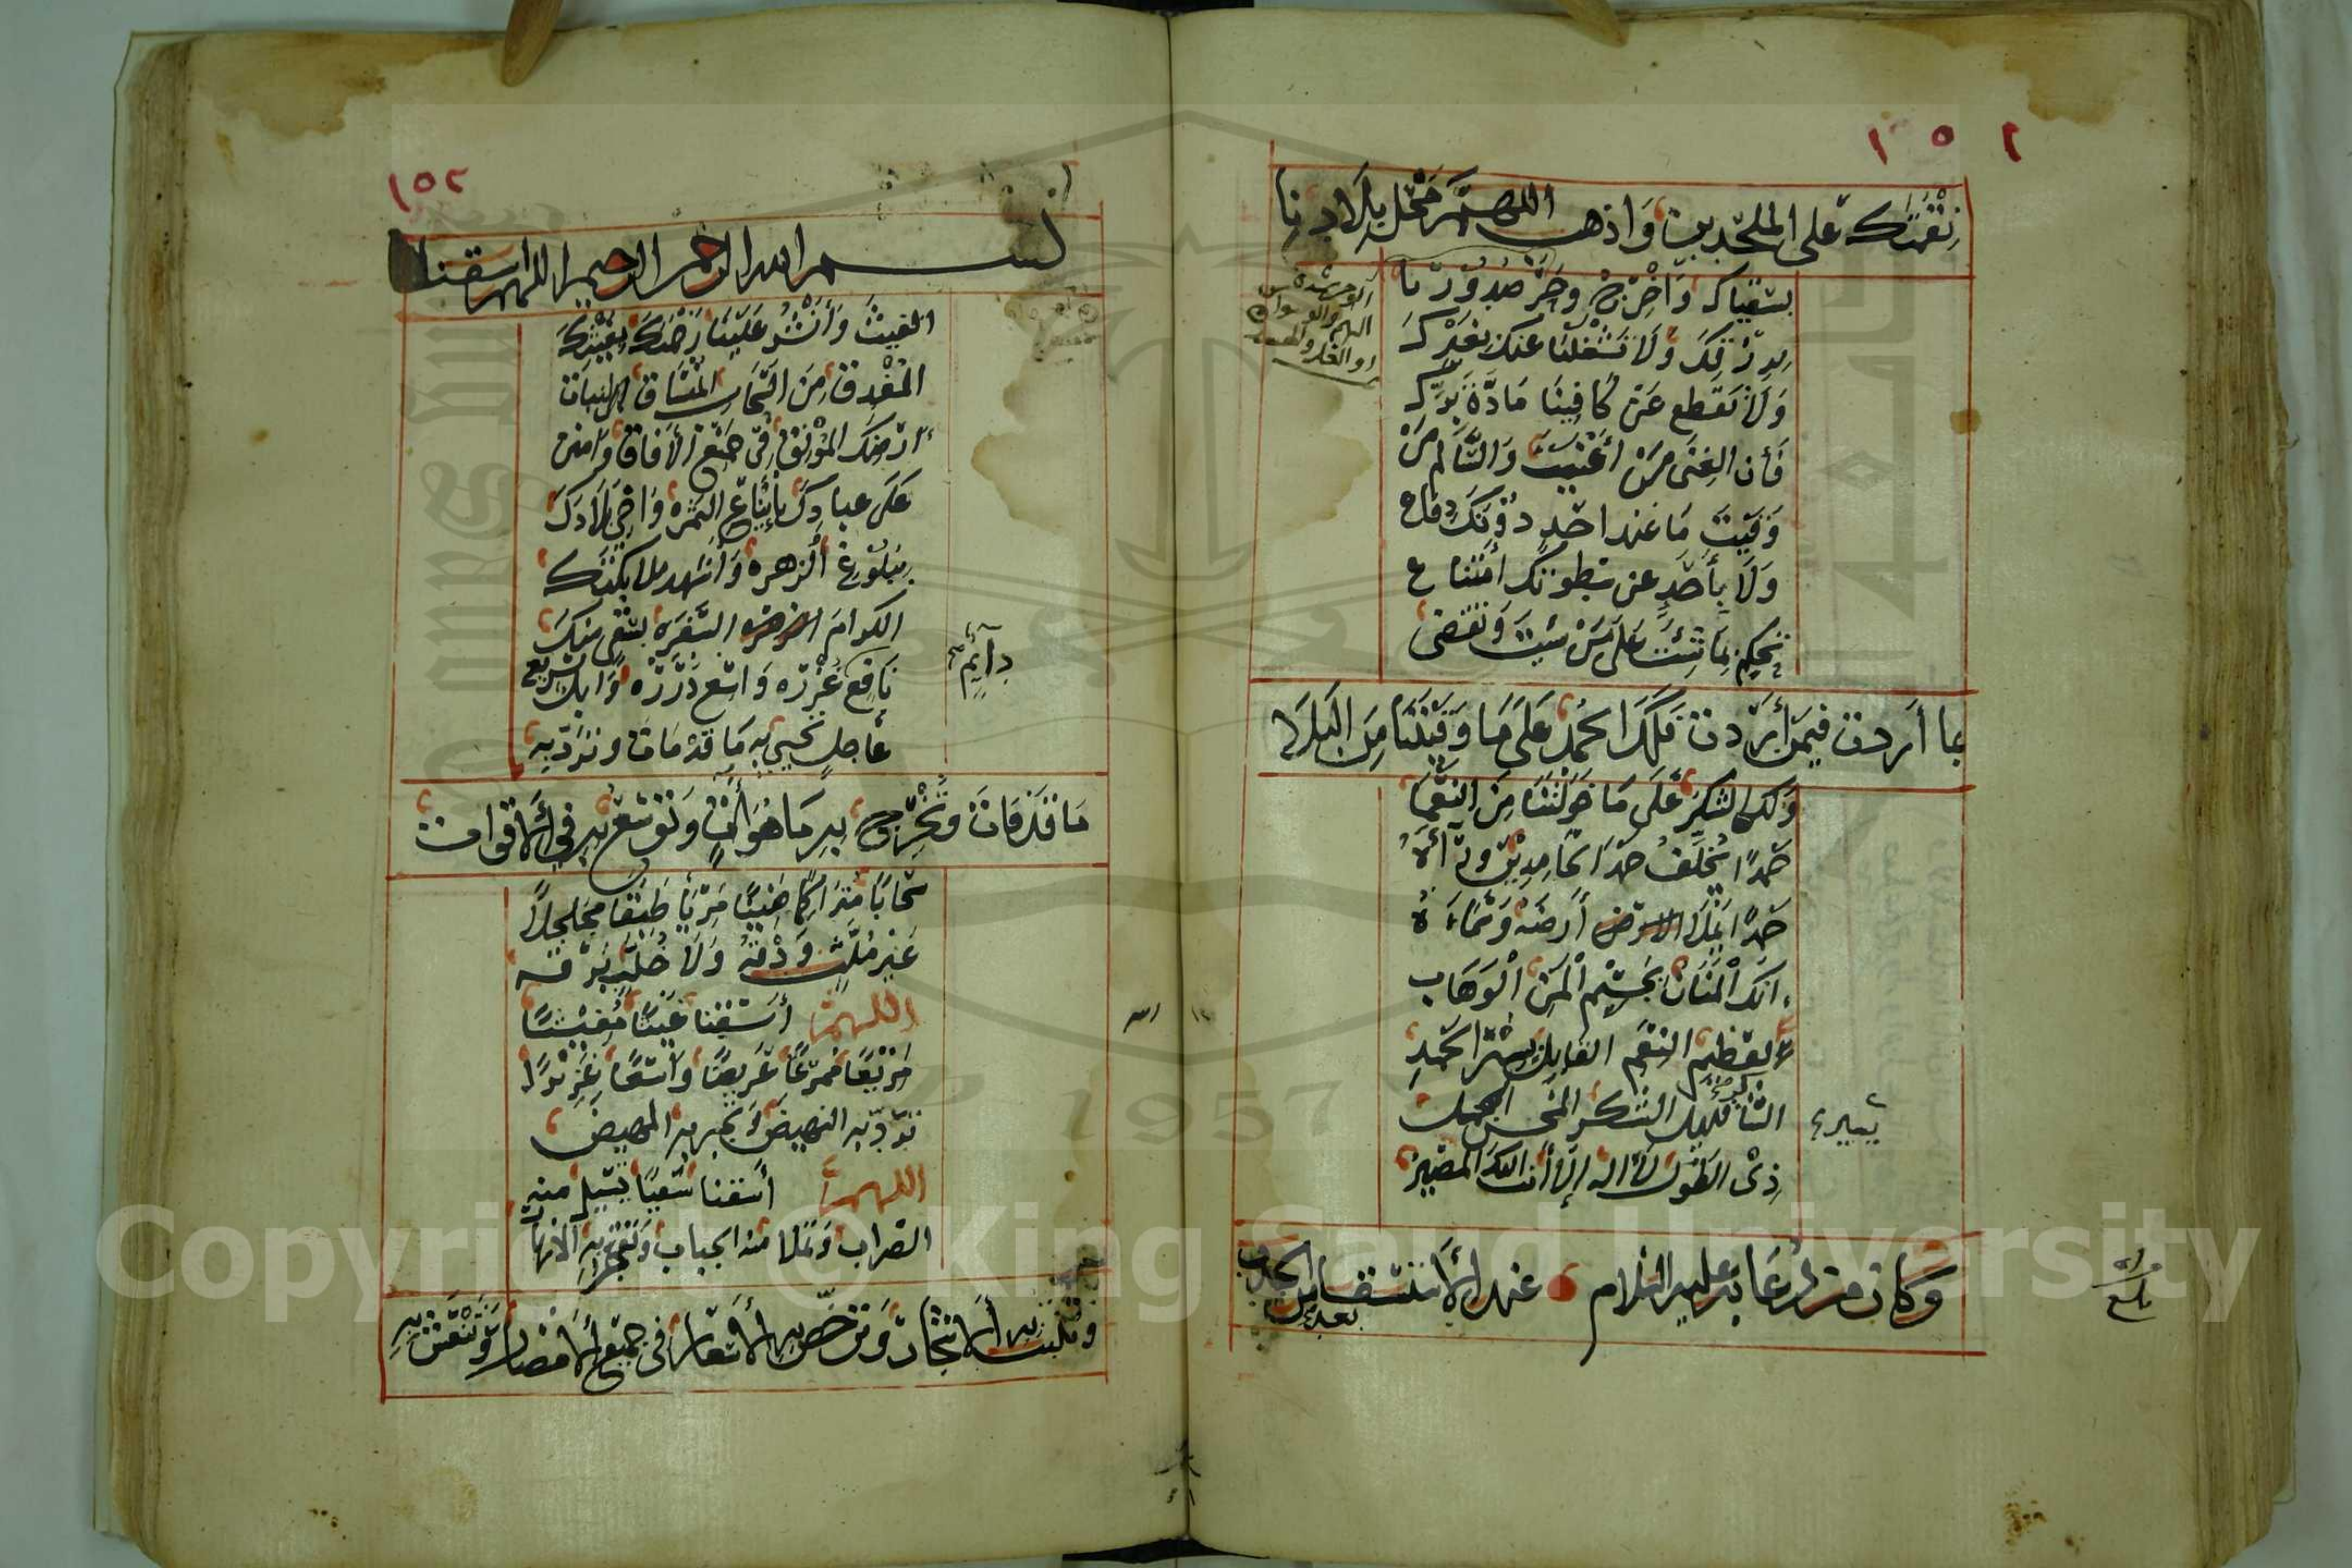 ١٥١
نقمتك على الملحدين واذهب اللهم محل بلادنا
بسقياك واخرج وحر صدورنا
برزقك ولا تشغلنا عنك بغيرك
ولا تقطع عن كافينا مادة برك
فأن الغنى من أغنيت والسالم من
وقيت ما عند احد دونك دفاع
ولا بأحد عن سطوتك امتناع
تحكم بما شئت على من شيت وتقضى
بما أردت فيمن أردت فلك الحمد على ما وقيتنا من البلاء
ولك الشكر على ما خولتنا من النعما
حمدا يخلف حمد الحامدين ورآءه
حمدا يملا الارض أرضه وسماءه
انك المنان بجسيم المنن الوهاب
لعظيم النعم القابل يسير الحمد
الشاكر قليل الشكر المحسن المجمل
ذى الطول لا اله إلا أنت اليك المصير
يسير
وكان من دعايه عليه السلام عند الأستسقا بعد الجدب
بلغ
١٥٢
بسم الله الرحمن الرحيم اللهم اسقنا
الغيث وأنشر علينا رحمتك بغيثك
المغدق من السحاب المنساق لنبات
أرضك المونق فى جميع الأفاق وامنن
على عبادك بأيناع الثمرة واحي بلادك
ببلوغ ألزهرة وأشهد ملايكتك
الكرام السفرة بسقي منك
نافع غزره واسع درره وابل سريع
دآيم
عاجل تحيي به ما قد مات وترد به
ما قد فات وتخرج به ما هو آت وتوسع به في ألاقوات
سحابا متراكما هنيئا مريا طبقا مجلجلا
غير ملث ودقه ولا خلب برقه
اللهم أسقنا غيثا مغيثا
مريعا ممرعا عريضا واسعا غزيرا
ترد به النهيض وتجبر به المهيض
اللهم أسقنا سقيا تسيل منه
الضراب وتملا منه الجباب وتفجر به الانهار
وتنبت به ألاشجار وترخص به ألاسعار في جميع ألامصار وتنعش به
Copyright © King Saud University
1957